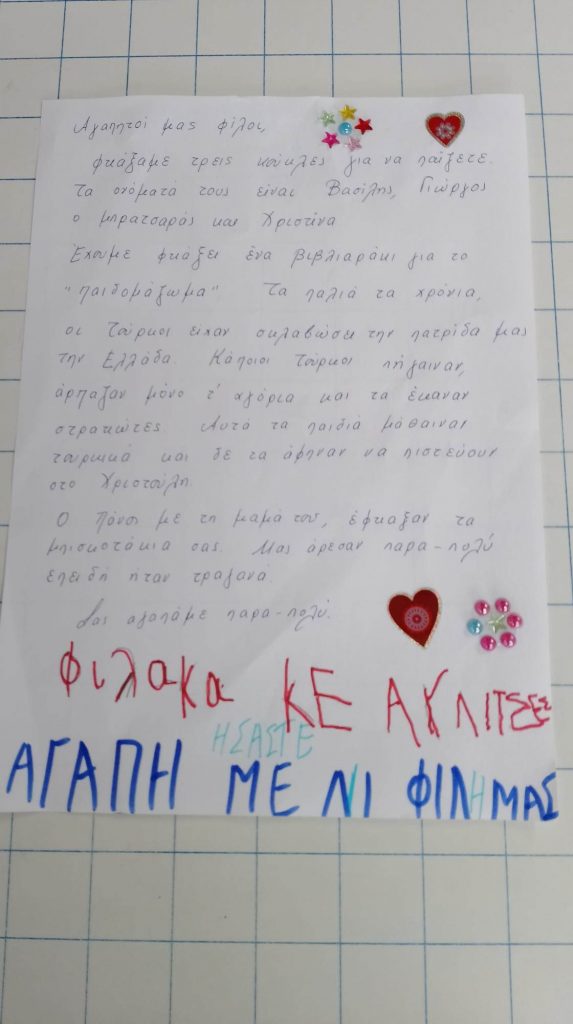 Αγαπητοί μας φίλοι,
φτιάξαμε τρεις κούκλες για να παίξετε.
Τα ονόματά τους είναι Βασίλης, Γιώργος
ο μπρατσαράς και Χριστίνα
Έχουμε φτιάξει ένα βιβλιαράκι για το
"παιδομάζωμα" Τα παλιά τα χρόνια,
οι Τούρκοι είχαν σκλαβώσει την πατρίδα μας
την Ελλάδα. Κάποιοι Τούρκοι πήγαιναν,
άρπαζαν μόνο τ' αγόρια και τα έκαναν
στρατιώτες. Αυτά τα παιδιά μάθαιναν
τουρκικά και δε τα άφηναν να πιστεύουν
στο Χριστούλη.
Ο με τη μαμά του, έφτιαξαν τα
μπισκοτάκια σας. Μας άρεσαν παρα-πολύ
επειδή ήταν τραγανά.
Σας αγαπάμε παρα-πολύ.
ΦιλаΚα ΚΕ
ΗΣΑΣΤΕ
ΑΓΑΠΗ ΜΕΝΙ ΦΙΛΗ ΜΑΣ